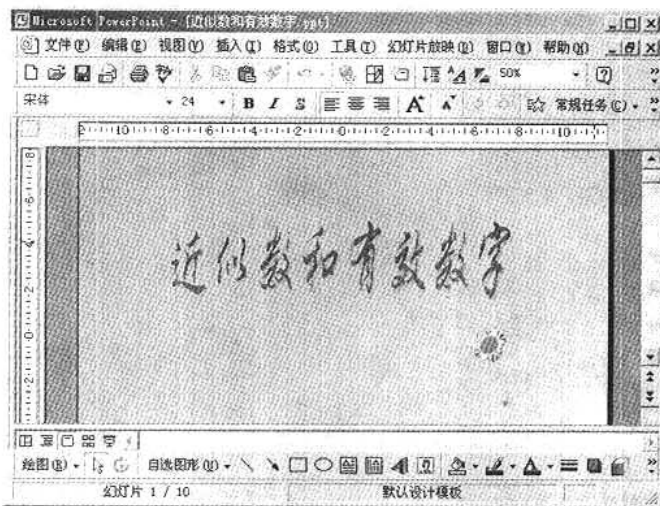 Microsoft PowerPoint - [近似数和有效数字.ppt]
文件(F) 编辑(E) 视图(V) 插入(I) 格式(O) 工具(T) 幻灯片放映(D) 窗口(W) 帮助(H)
50%
宋体 24 B I S A A 常规任务(C)
2 10 8 6 4 2 0 2 4 6 8 10
8
6
4
2
0
2
近似数和有效数字
绘图(R) 自选图形(U) A
幻灯片 1 / 10 默认设计模板